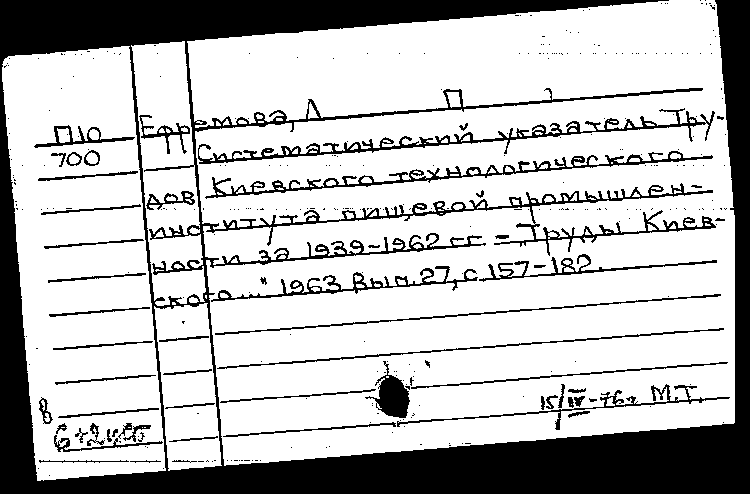 П10 Ефремова, Л П
700 Систематический указатель Тру-
дов Киевского технологического
института пищевой промышлен-
ности за 1939-1962 гг. - „Труды Киев-
ского..." 1963 Вып. 27, с. 157-182.
15/IV-76г М.Т.
в